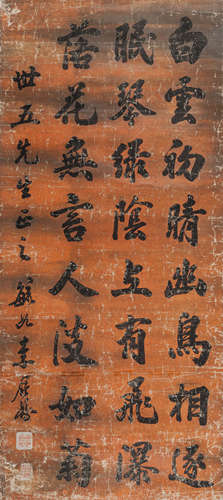 白雲初晴幽鳥相逐
眠琴綠陰上有飛瀑
落花無言人淡如菊
世五先生正之